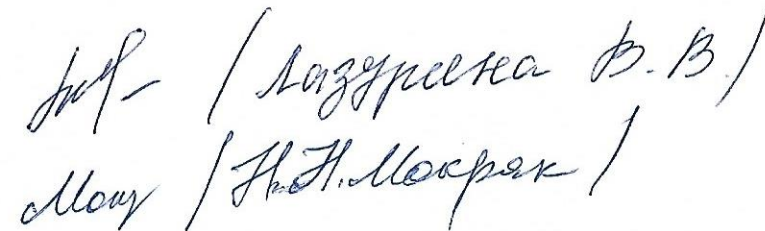 / Лазурина В. В. /
/ Н.Н. Мокряк /